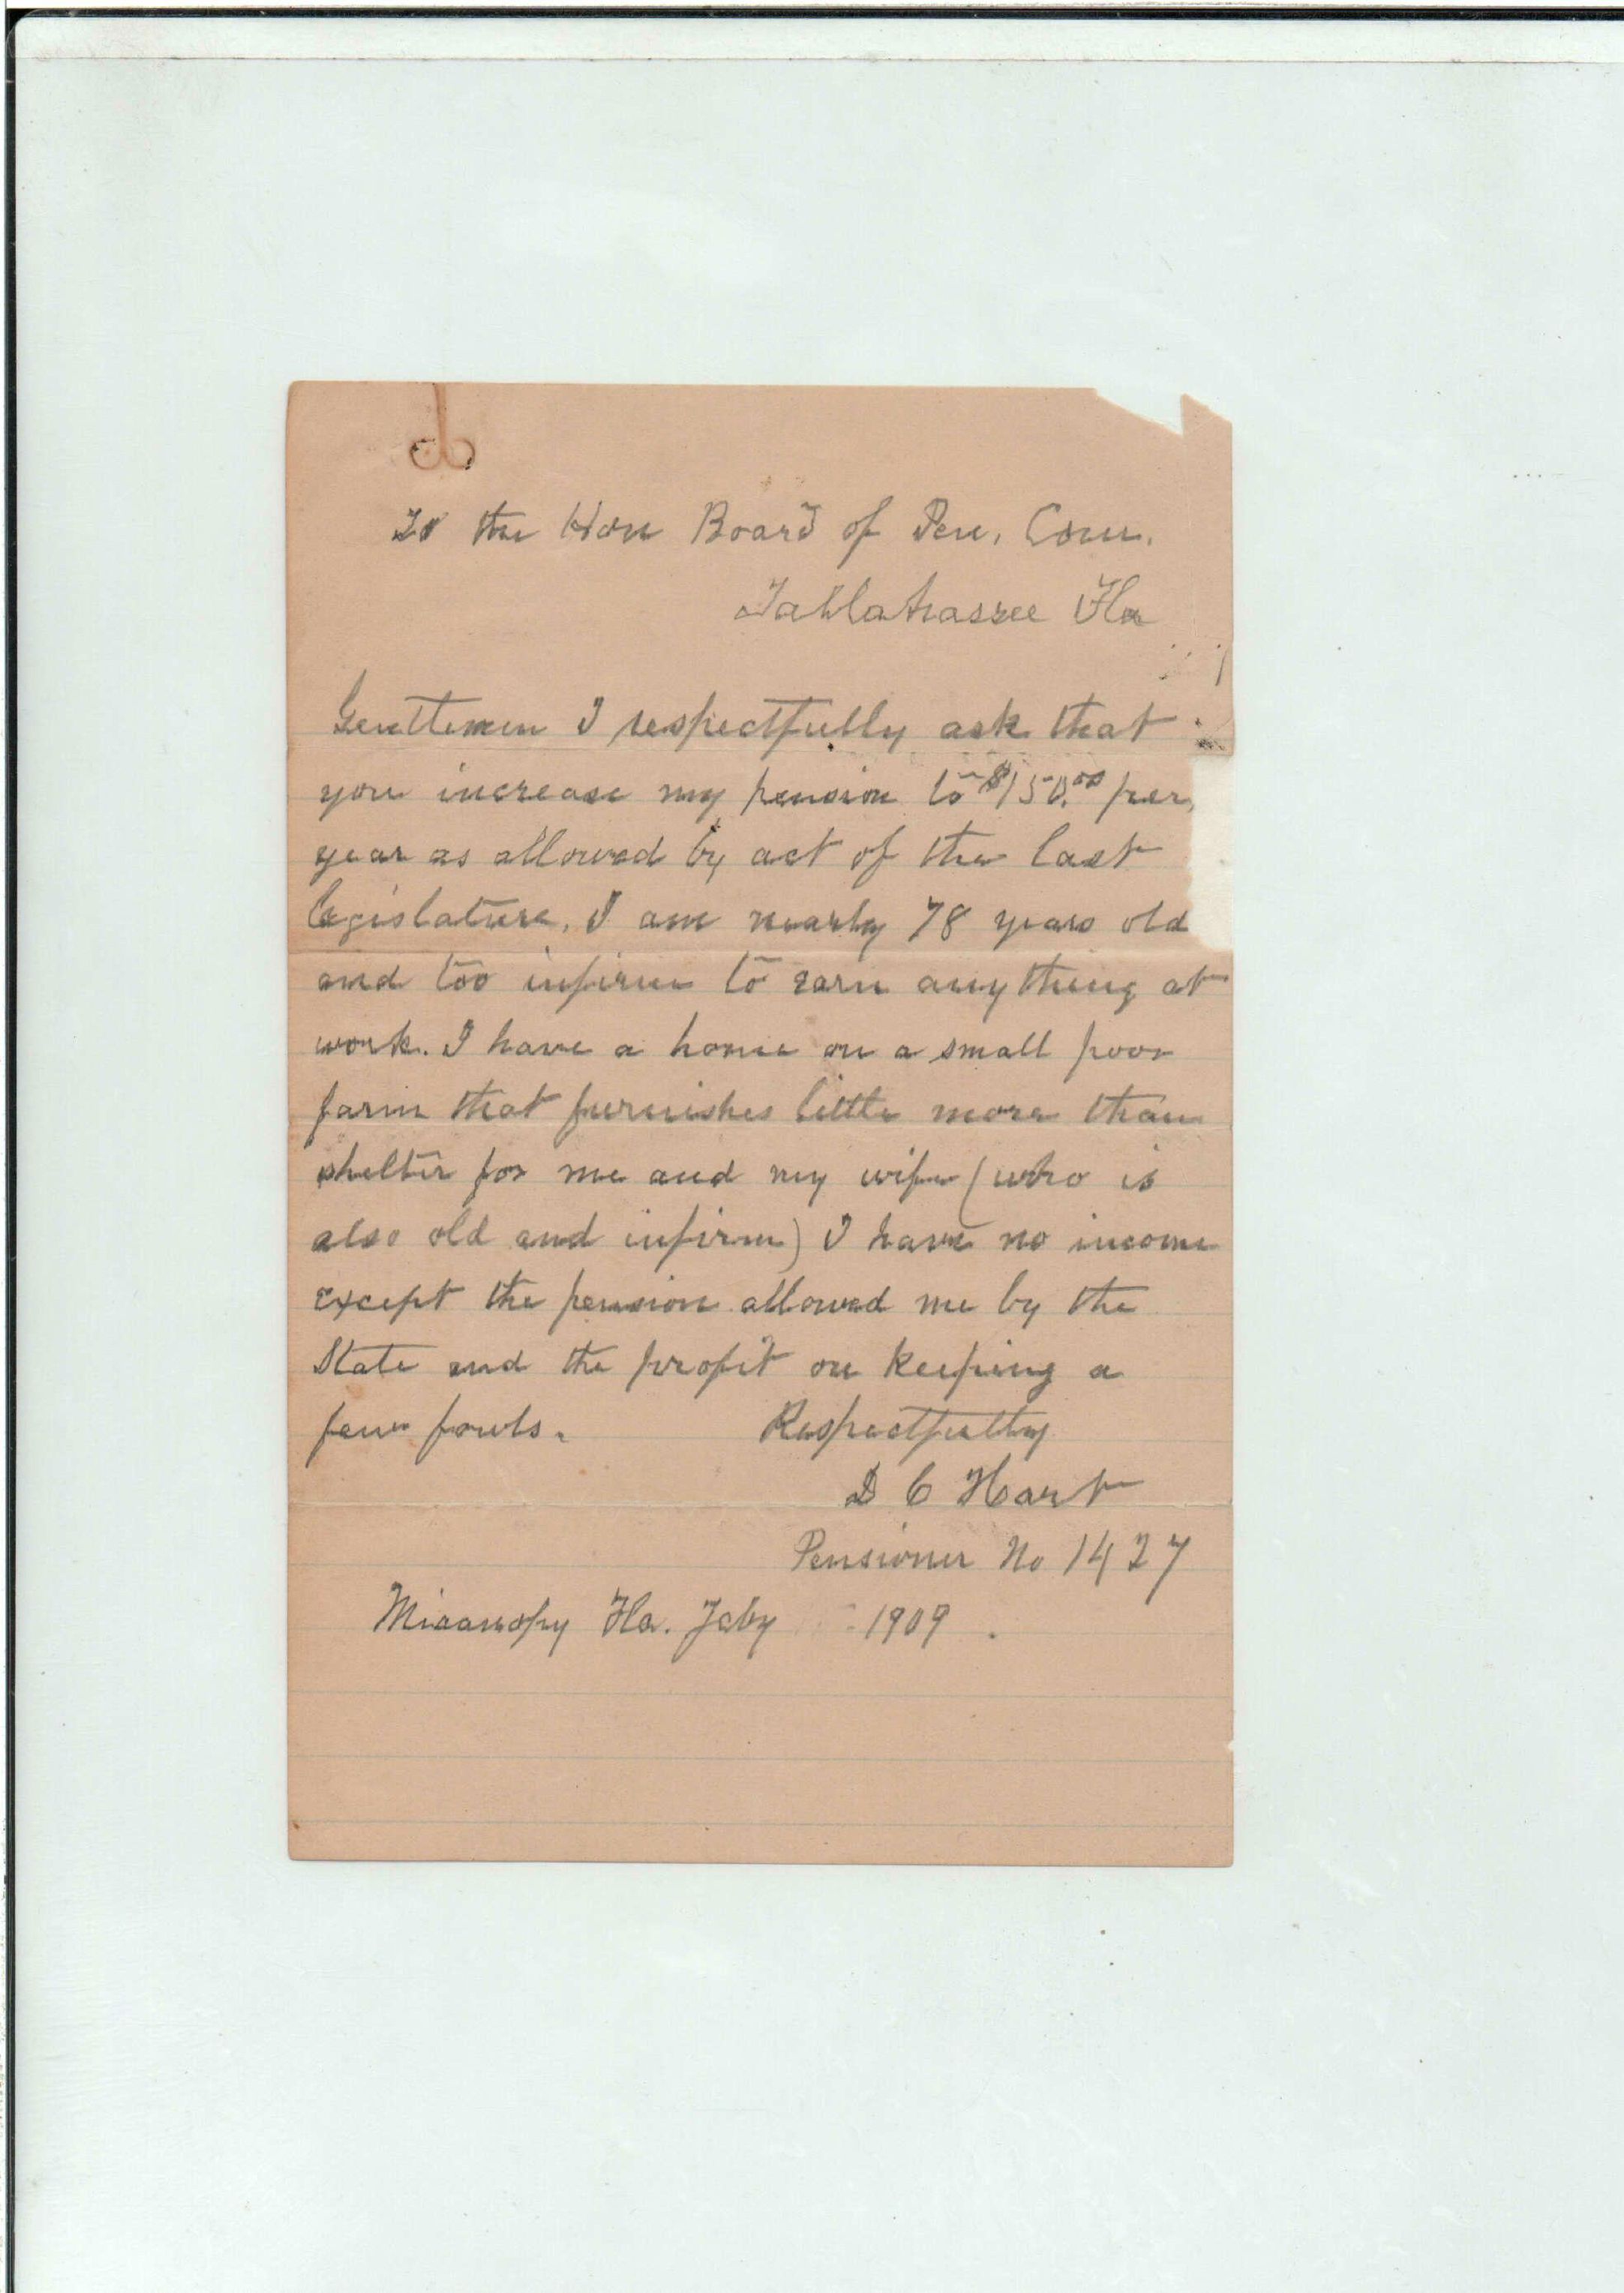 To the Hon Board of Pen. Com.
Tahlahassee Fla
Gentlemen I respectfully ask that
you increase my pension to $150.00 per
year as allowed by act of the last
legislature. I am nearly 78 years old
and too infirm to earn any thing at
work. I have a home on a small poor
farm that furnishes little more than
shelter for me and my wife (who is
also old and infirm) I have no income
except the pension allowed me by the
State and the profit on keeping a
few fowls.
Respectfully
D C Hart
Pensioner No 1427
Micanopy Fla. July 1909.